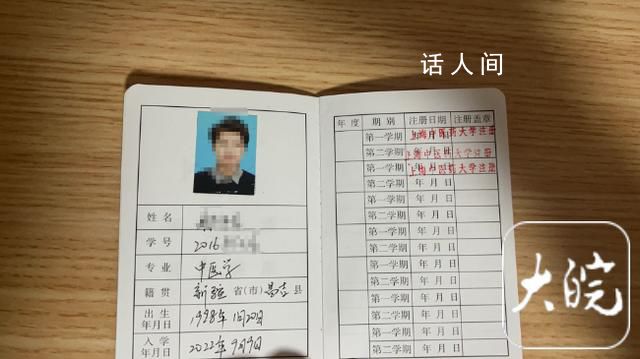 话人间
姓名
学号 2016
专业 中医学
籍贯 新疆 省(市) 昌吉 县
出生年月日 1998年1月20日
入学年月日 2022年9月9日
年度 期别 注册日期 注册盖章
第一学期 年 月 日 上海中医药大学注册
第二学期 年 月 日 上海中医药大学注册
第一学期 年 月 日 上海中医药大学注册
第二学期 年 月 日
第一学期 年 月 日
第二学期 年 月 日
第一学期 年 月 日
第二学期 年 月 日
第一学期 年 月 日
第二学期 年 月 日
第一学期 年 月 日
第二学期 年 月 日
第一学期 年 月 日
第二学期 年 月 日
大皖